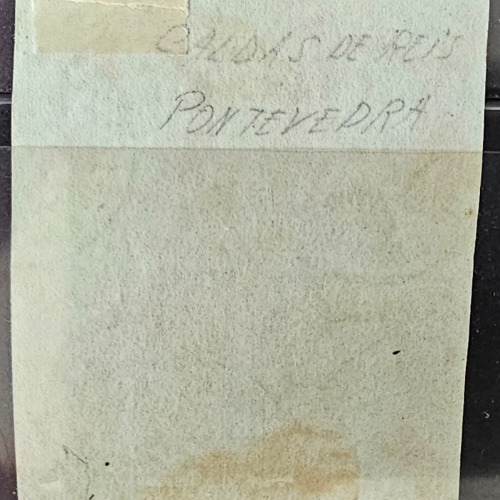 CALDAS DE REIS
PONTEVEDRA